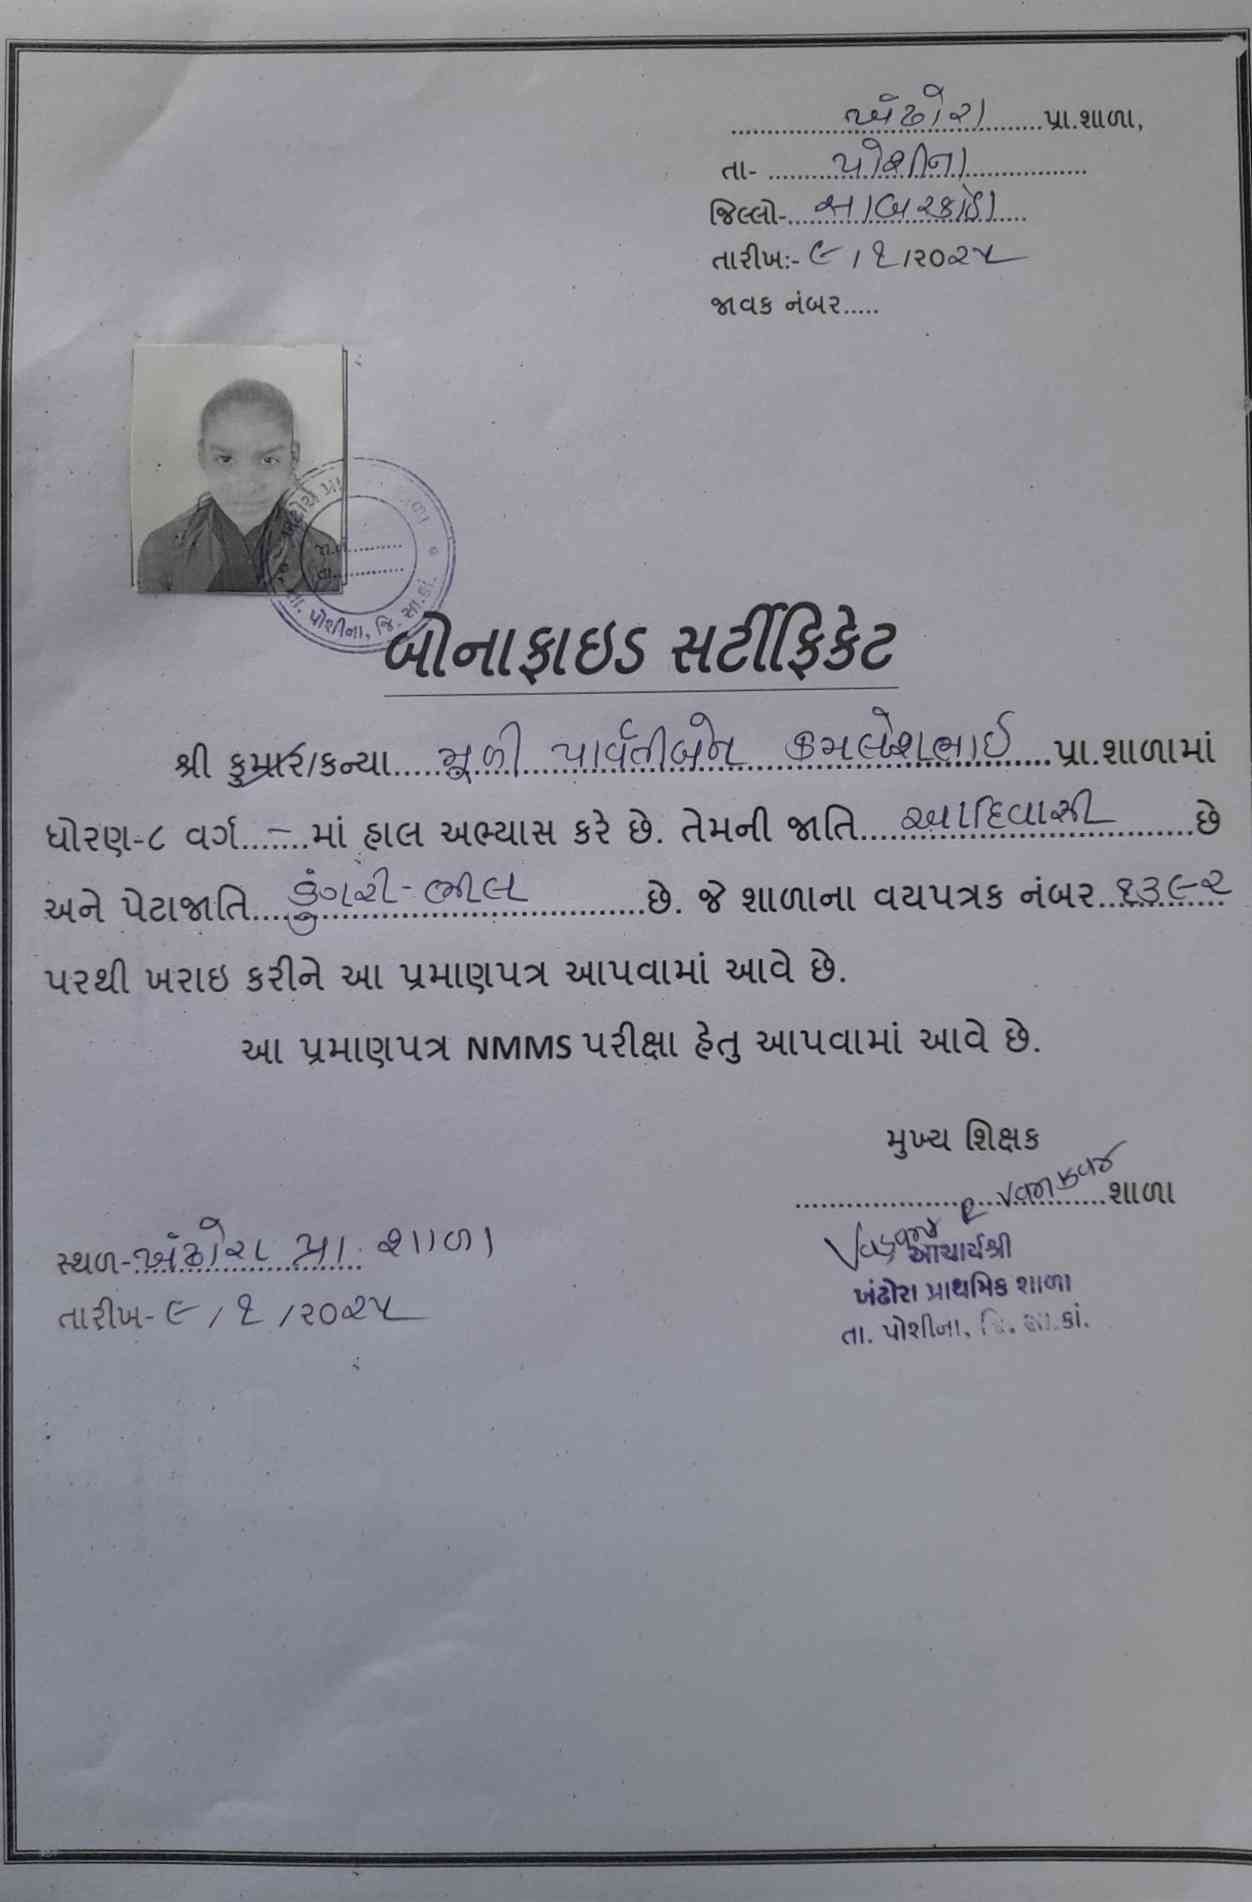 ખંઢોરા પ્રા.શાળા,
તા- પોશીના
જિલ્લો- સાબરકાંઠા
તારીખ:- ૯/૧/૨૦૨૫
જાવક નંબર.....
તા. પોશીના, જિ. સા.કાં.
બોનાફાઇડ સર્ટીફિકેટ
શ્રી કુમાર/કન્યા..... પાર્વતીબેન કમલેશભાઈ પ્રા.શાળામાં
ધોરણ-૮ વર્ગ...–...માં હાલ અભ્યાસ કરે છે. તેમની જાતિ... આદિવાસી ...છે
અને પેટાજાતિ.... ડુંગરી-ભીલ ...છે. જે શાળાના વયપત્રક નંબર.. ૧૩૯૨
પરથી ખરાઇ કરીને આ પ્રમાણપત્ર આપવામાં આવે છે.
આ પ્રમાણપત્ર NMMS પરીક્ષા હેતુ આપવામાં આવે છે.
મુખ્ય શિક્ષક
શાળા
સ્થળ- ખંઢોરા પ્રા. શાળા
તારીખ- ૯/૧/૨૦૨૫
આચાર્યશ્રી
ખંઢોરા પ્રાથમિક શાળા
તા. પોશીના, જિ. સા.કાં.